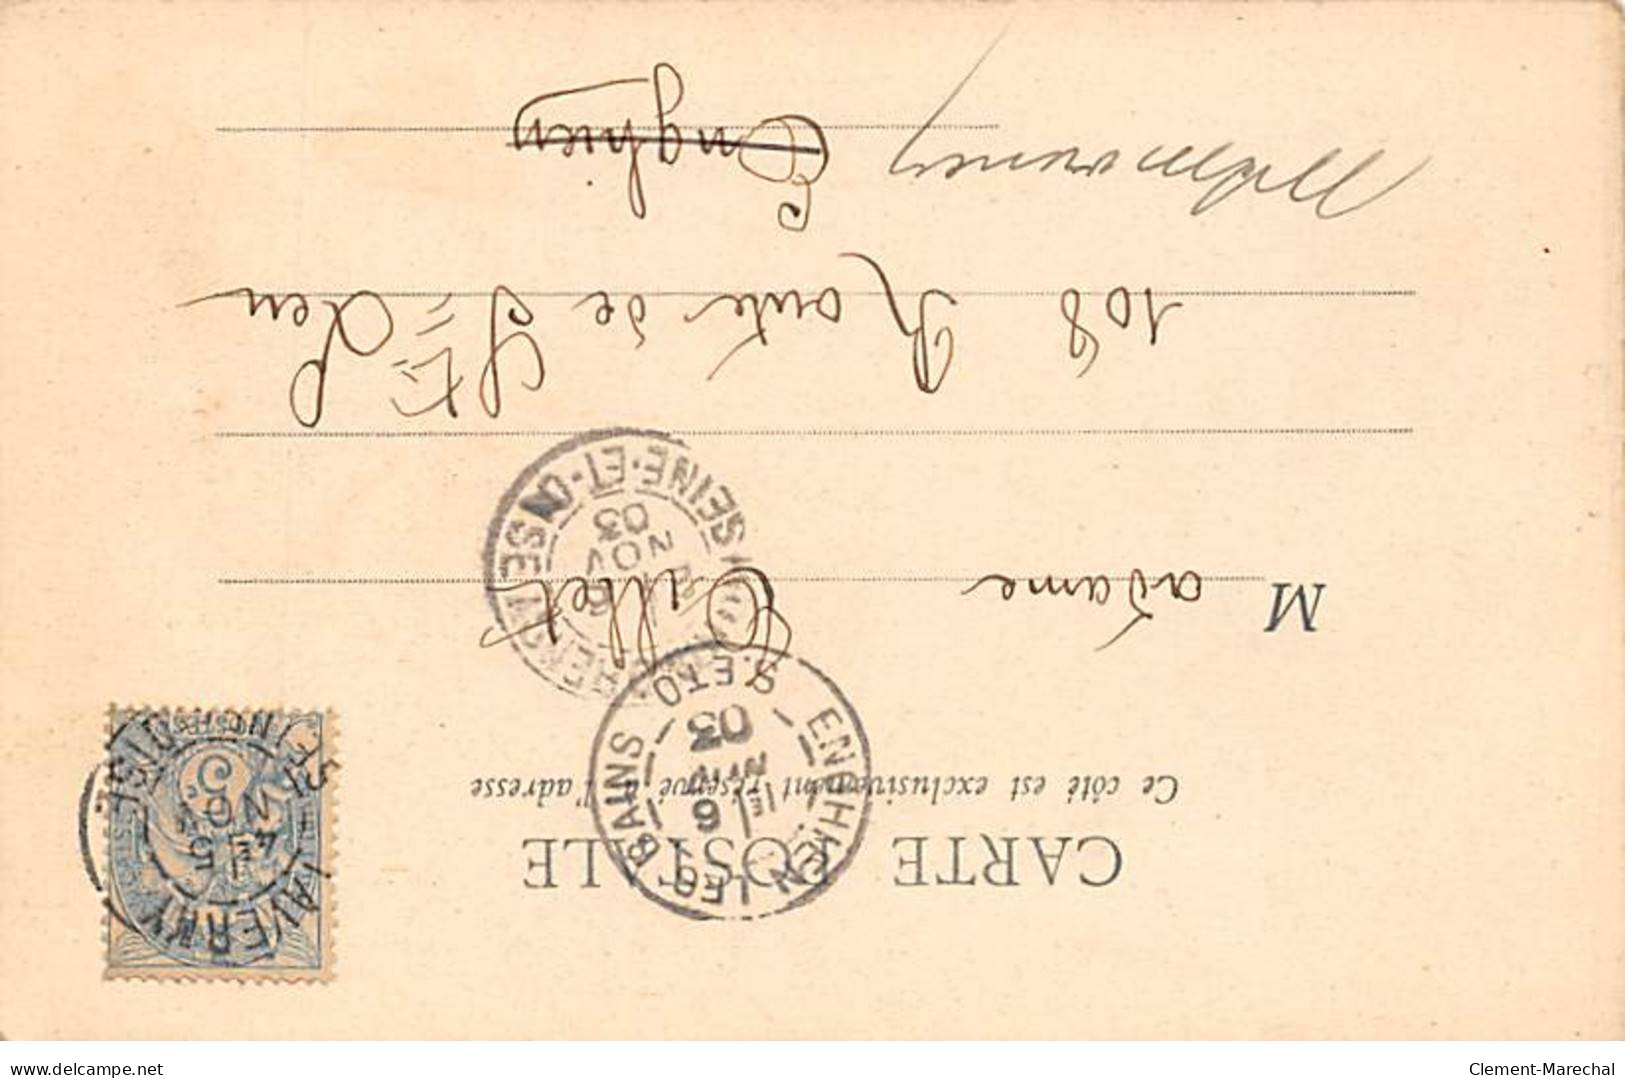 CARTE POSTALE
Ce côté est exclusivement réservé à l'adresse
Madame Callet
108 Route de St Leu
Enghien
ENGHIEN LES BAINS S. ET O.
6
NOV
03
SEINE-ET-OISE
NOV
03
TAVERNY SEINE-ET-OISE
4E
5
NOV
5
delcampe.net
Clement-Marechal